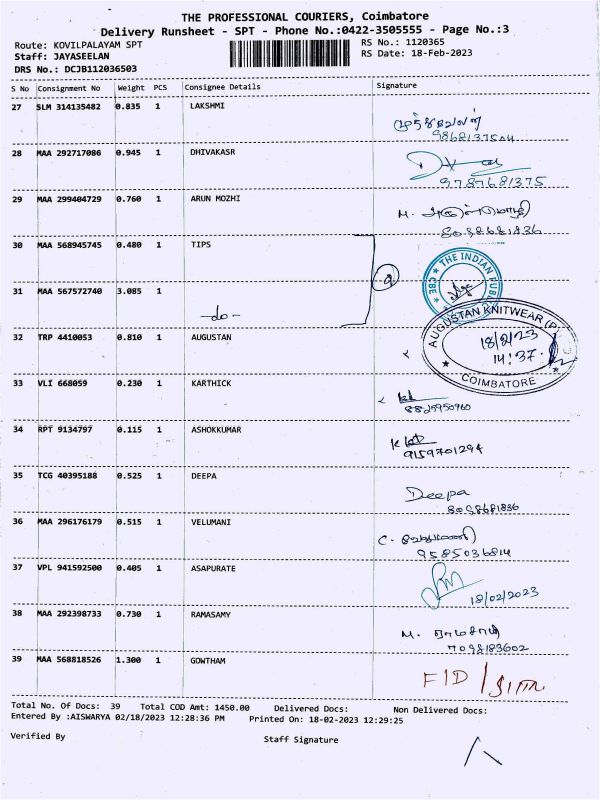 THE PROFESSIONAL COURIERS, Coimbatore
Delivery Runsheet - SPT - Phone No.:0422-3505555 - Page No.:3
Route: KOVILPALAYAM SPT
RS No.: 1120365
Staff: JAYASEELAN
RS Date: 18-Feb-2023
DRS No.: DCJB112036503
S No Consignment No Weight PCS Consignee Details Signature
27 SLM 314135482 0.835 1 LAKSHMI
28 MAA 292717086 0.945 1 DHIVAKASR
9787681375
29 MAA 299404729 0.760 1 ARUN MOZHI
M. அருள்மொழி
8098681836
30 MAA 568945745 0.480 1 TIPS
THE INDIAN PUBL
CBE
31 MAA 567572740 3.085 1
-do-
AUGUSTAN KNITWEAR (P)
32 TRP 4410053 0.810 1 AUGUSTAN
18/2/23
14:37
COIMBATORE
33 VLI 668059 0.230 1 KARTHICK
8825950960
34 RPT 9134797 0.115 1 ASHOKKUMAR
9159701294
35 TCG 40395188 0.525 1 DEEPA
Deepa
8098681836
36 MAA 296176179 0.515 1 VELUMANI
C. வேலுமணி
9585036814
37 VPL 941592500 0.405 1 ASAPURATE
18/02/2023
38 MAA 292398733 0.730 1 RAMASAMY
M. ராமசாமி
7098183602
39 MAA 568818526 1.300 1 GOWTHAM
Total No. Of Docs: 39 Total COD Amt: 1450.00 Delivered Docs: Non Delivered Docs:
Entered By :AISWARYA 02/18/2023 12:28:36 PM Printed On: 18-02-2023 12:29:25
Verified By Staff Signature